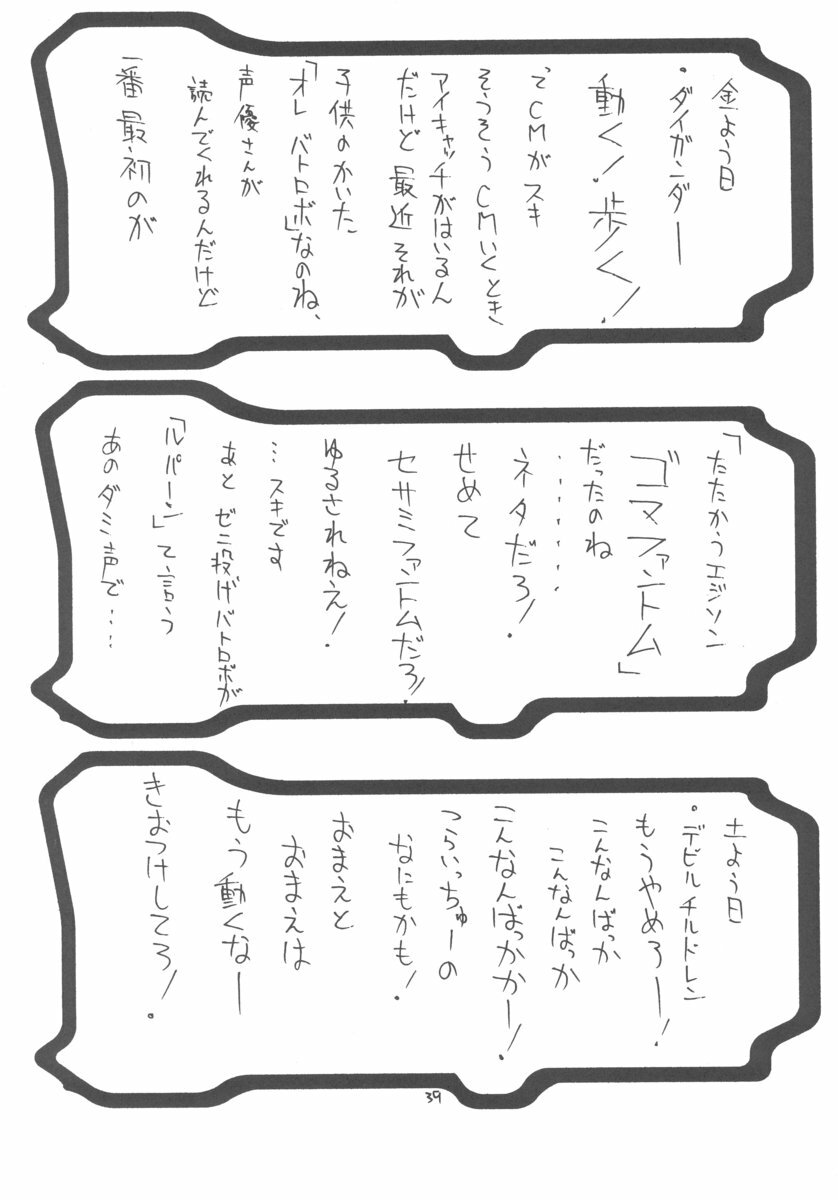 金よう日
・ダイガンダー
動く!歩く!
ってCMがスキ
そうそうCMいくとき
アイキャッチがはいるん
だけど最近それが
子供のかいた
「オレバトロボ」なのね、
声優さんが
読んでくれるんだけど
一番最初のが
「たたかうエジソン
ゴマファントム」
だったのね
・・・・・・・
ネタだろ!
せめて
セサミファントムだろ!
ゆるされねえ!
…スキです
あとゼニ投げバトロボが
「ルパーン」て言う
あのダミ声で……
土よう日
・デビルチルドレン
もうやめろー!
こんなんばっか
こんなんばっか
こんなんばっかかー!
つらいっちゅーの
なにもかも!
おまえと
おまえは
もう動くなー
きおつけしてろ!。
39